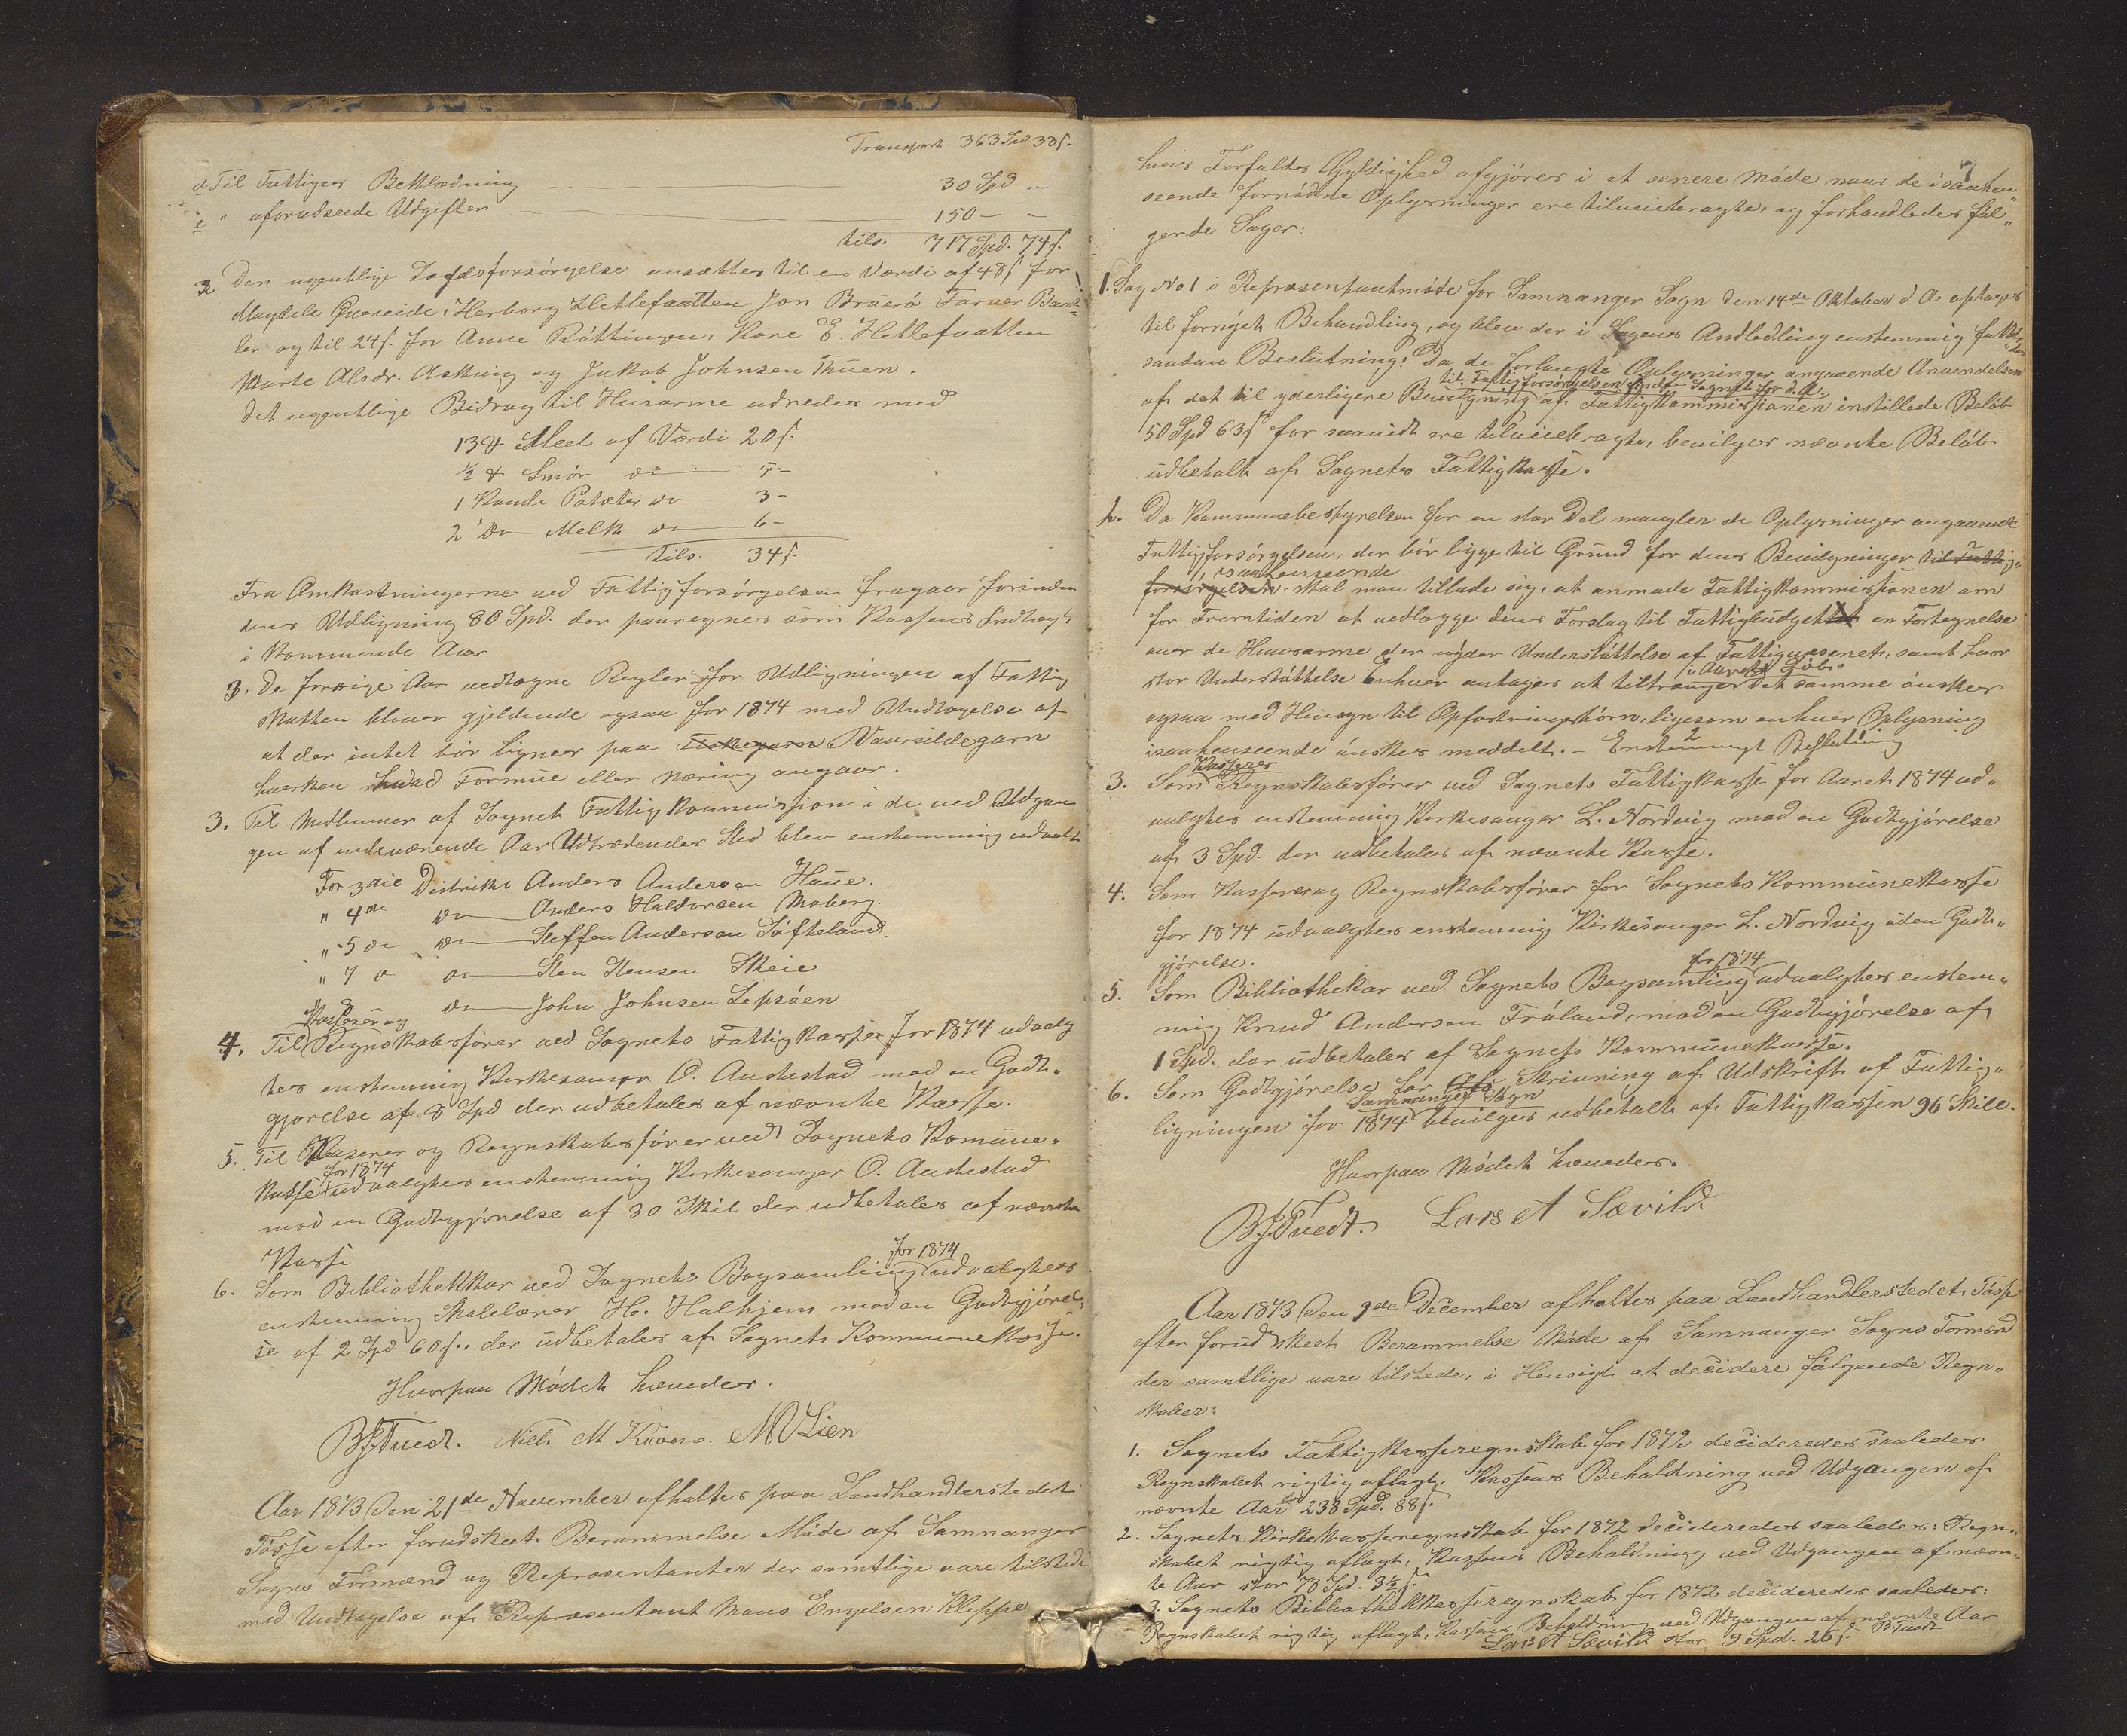 Transport 363 Spd 38 s.
d Til Fattiges Beklædning 30 Spd. -
e " uforudseede Udgifter 150 - "
tils. 717 Spd. 74 s.
2 Den ugentlige Lægdsforsörgelse ansættes til en Værdi af 48 s for
Magdele Qvereide, Herborg Hetlefaatten Jon Braarö
ler og til 24 s. for Anne Röttingen, Kare E. Hetlefaatten
Marte Alsdr. Asking og Jakob Johnsen Thuen.
Det ugentlige Bidrag til Husarme udredes med
13 ℔ Meel af Værdi 20 s.
½ ℔ Smör do 5 -
1 Kande Poteter do 3 -
2 do Melk do 6 -
tils. 34 s.
Fra Omkostningerne ved Fattigforsörgelsen fragaar forinden
denes Udligning 80 Spd. der paaregnes som Kassens Indtægt
i kommende Aar
3. De forrige Aar vedtagne Regler for Udligningen af Fattig
skatten bliver gjeldende ogsaa for 1874 med Undtagelse af
at der intet bör lignes paa Fiskegarn Vaarsildegarn
hverken hvad Formue eller Næring angaar.
3. Til Medlemmer af Sognets Fattigkommission i de ved Udgan
gen af indeværende Aar Udtrædendes Sted blev enstemming udvalgt
For 3die Distrikt Anders Andersen Haue.
" 4de do Anders Haldorsen Moberg.
" 5 do do Steffen Andersen Söfteland.
" 7 do do Sten Stensen Skeie
" 8 do John Johnsen Lepsöen
Kasserer og
4. Til Regnskabsförer ved Sognets Fattigkasse for 1874 udvalg
tes enstemmig Kirkesanger O. Austestad mod en Godt„
gjorelse af 8 Spd der udbetales af nævnte Kasse.
5. Til Kaserer og Regnskabsförer ved Sognets Komune„
for 1874
kasse udvalgtes enstemmig Kirkesanger O. Austestad
mod en Godtgjörelse af 30 Skil der udbetales af nævnte
Kasse
for 1874
6. Som Bibliothekkar ved Sognets Bogsamling udvalgtes
enstemmig Skolelærer H. Halhjem mod en Godtgjörel„
se af 2 Spd 60 s.. der udbetales af Sognets Kommunekasse.
Hvorpaa Mödet hævedes.
B. J. Tvedt. Niels M Kuven. M O Lien
Aar 1873 Den 21de November afholtes paa Landhandlerstedet
Tösse efter forudskeet Berammelse Möde af Samnanger
Sogns Formænd og Repræsentanter der samtlige vare tilstede
med Undtagelse af Repræsentant Mons Engelsen Kleppe
7
hvis Forfalds Gyldighed afgjöres i et senere Möde naar de i saahen„
seende fornödne Oplysninger ere tilveiebragte, og forhandledes föl„
gende Sager:
1. Sag No 1 i Repræsentantmöde for Samnanger Sogn den 14de Oktober d A optoges
til fornyet Behandling, og blev der i Sagens Andledling enstemmig fattet
saadan Beslutning: Da de forlangte Oplysninger angaaende Anvendelsen
til Fattigforsörgelsen i Sognet for d. A.
af det til yderligere Bevilgning af Fattigkommissionen instillede Belöb
50 Spd 63 s for saavidt ere tilveiebragte, bevilges nævnte Belöb
udbetalt af Sognets Fattigkasse.
2. Da Kommunebestyrelsen for en stor Del mangler de Oplysninger angaaende
Fattigforsörgelsen, der bör ligge til Grund for dens Bevilgninger til Fattig„
i saahenseende
forsörgelsen, skal man tillade sig, at anmode Fattigkommissionen om
for Fremtiden at vedlægge dens Forslag til Fattigbudgettet en Fortegnelse
over de Huusarme der nyder Understöttelse af Fattigvæsenet, samt hvor
i Aarets Löb.
stor Understöttelse Enhver antages at tiltrænger Det samme önskes
ogsaa med Hensyn til Opfostringsbörn, ligesom enhver Oplysning
isaahenseende önskes meddelt. - Enstemmigt Beslutning
Kasserer
3. Som Regnskabsförer ved Sognets Fattigkasse for Aaret 1874 ud„
valgtes enstemmig Kirkesanger L. Nordvig mod en Godtgjörelse
af 3 Spd. der udbetales af nævnte Kasse.
4. Som Kasserer og Regnskabsförer for Sognets Kommunekasse
for 1874 udvalgtes enstemmig Kirkesanger L. Nordvig uden Godt„
gjörelse.
for 1874
5. Som Bibliothekar ved Sognets Bogsamling udvalgtes enstem„
mig Knud Andersen Fröland, mod en Godtgjörelse af
1 Spd. der udbetales af Sognets Kommunekasse.
6. Som Godtgjörelse for Skrivning af Udskrift af Fattig„
Samnanger Sogn
ligningen for 1874 bevilges udbetalt af Fattigkassen 96 Skill.
Hvorpaa Mödet hævedes.
B. J. Tvedt. Lars A Sævild.
Aar 1873 Den 9de December afholtes paa Landhandlerstedet Tösse
efter forud skeet Berammelse Möde af Samnanger Sogns Formænd
der samtlige vare tilstede, i Hensigt at decidere fölgende Regn„
skaber:
1. Sognets Fattigkasseregnskab for 1872 decideredes saaledes
Regnskabet rigtig aflagt, Kassens Beholdning ved Udgangen af
nævnte Aar stor 238 Spd. 88 s.
2. Sognets Kirkekasseregnskab for 1872 decideredes saaledes: Regn„
skabet rigtig aflagt, Kassens Beholdning ved Udgangen af nævn„
te Aar stor 78 Spd. 3½ s.
3. Sognets Bibliothekkasseregnskab for 1872 decideredes saaledes:
Regnskabet rigtig aflagt, Kassens Beholdning ved Udgangen af nævnte Aar
Lars A Sævild stor 9 Spd. 26 s. B. Tvedt